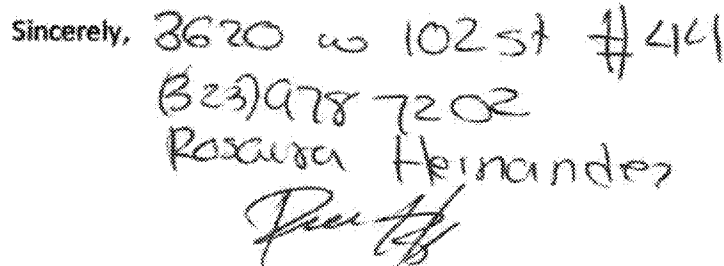 Sincerely, 3620 w 102 st #44
(323) 978 7202
Rosaura Hernandez